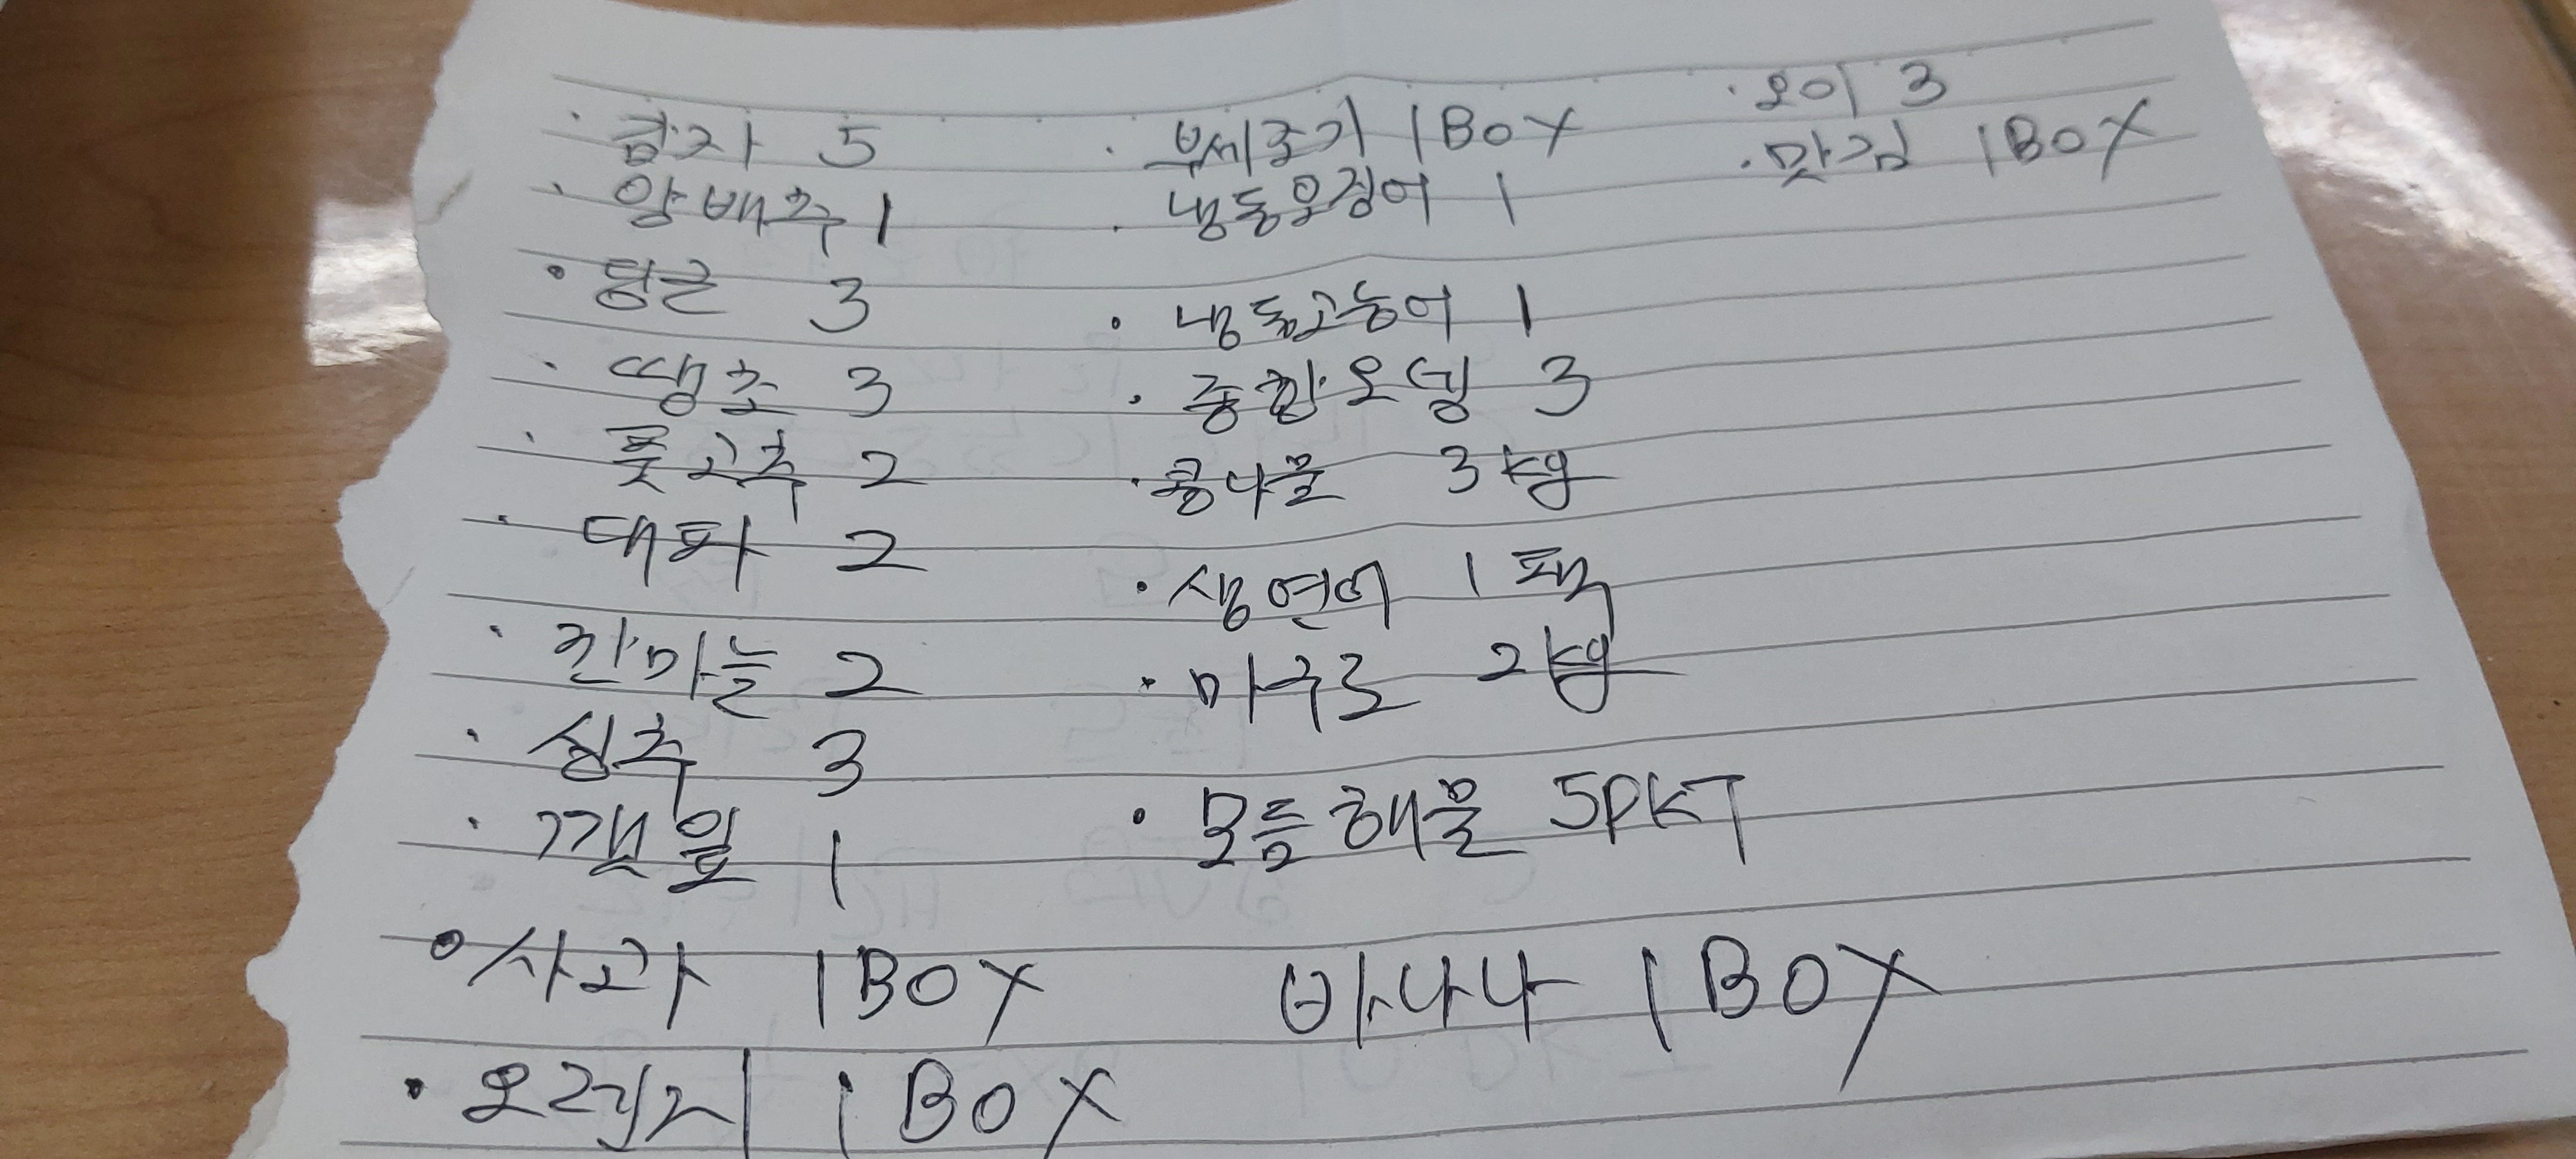 · 감자 5
· 양배추 1
· 당근 3
· 땡초 3
· 풋고추 2
· 대파 2
· 깐마늘 2
· 상추 3
· 깻잎 1
· 사과 1BOX
· 오렌지 1BOX
· 부세조기 1BOX
· 냉동오징어 1
· 냉동고등어 1
· 종합오뎅 3
· 콩나물 3kg
· 생연어 1팩
· 마구로 2kg
· 모듬해물 5PKT
바나나 1BOX
· 오이 3
· 맛김 1BOX